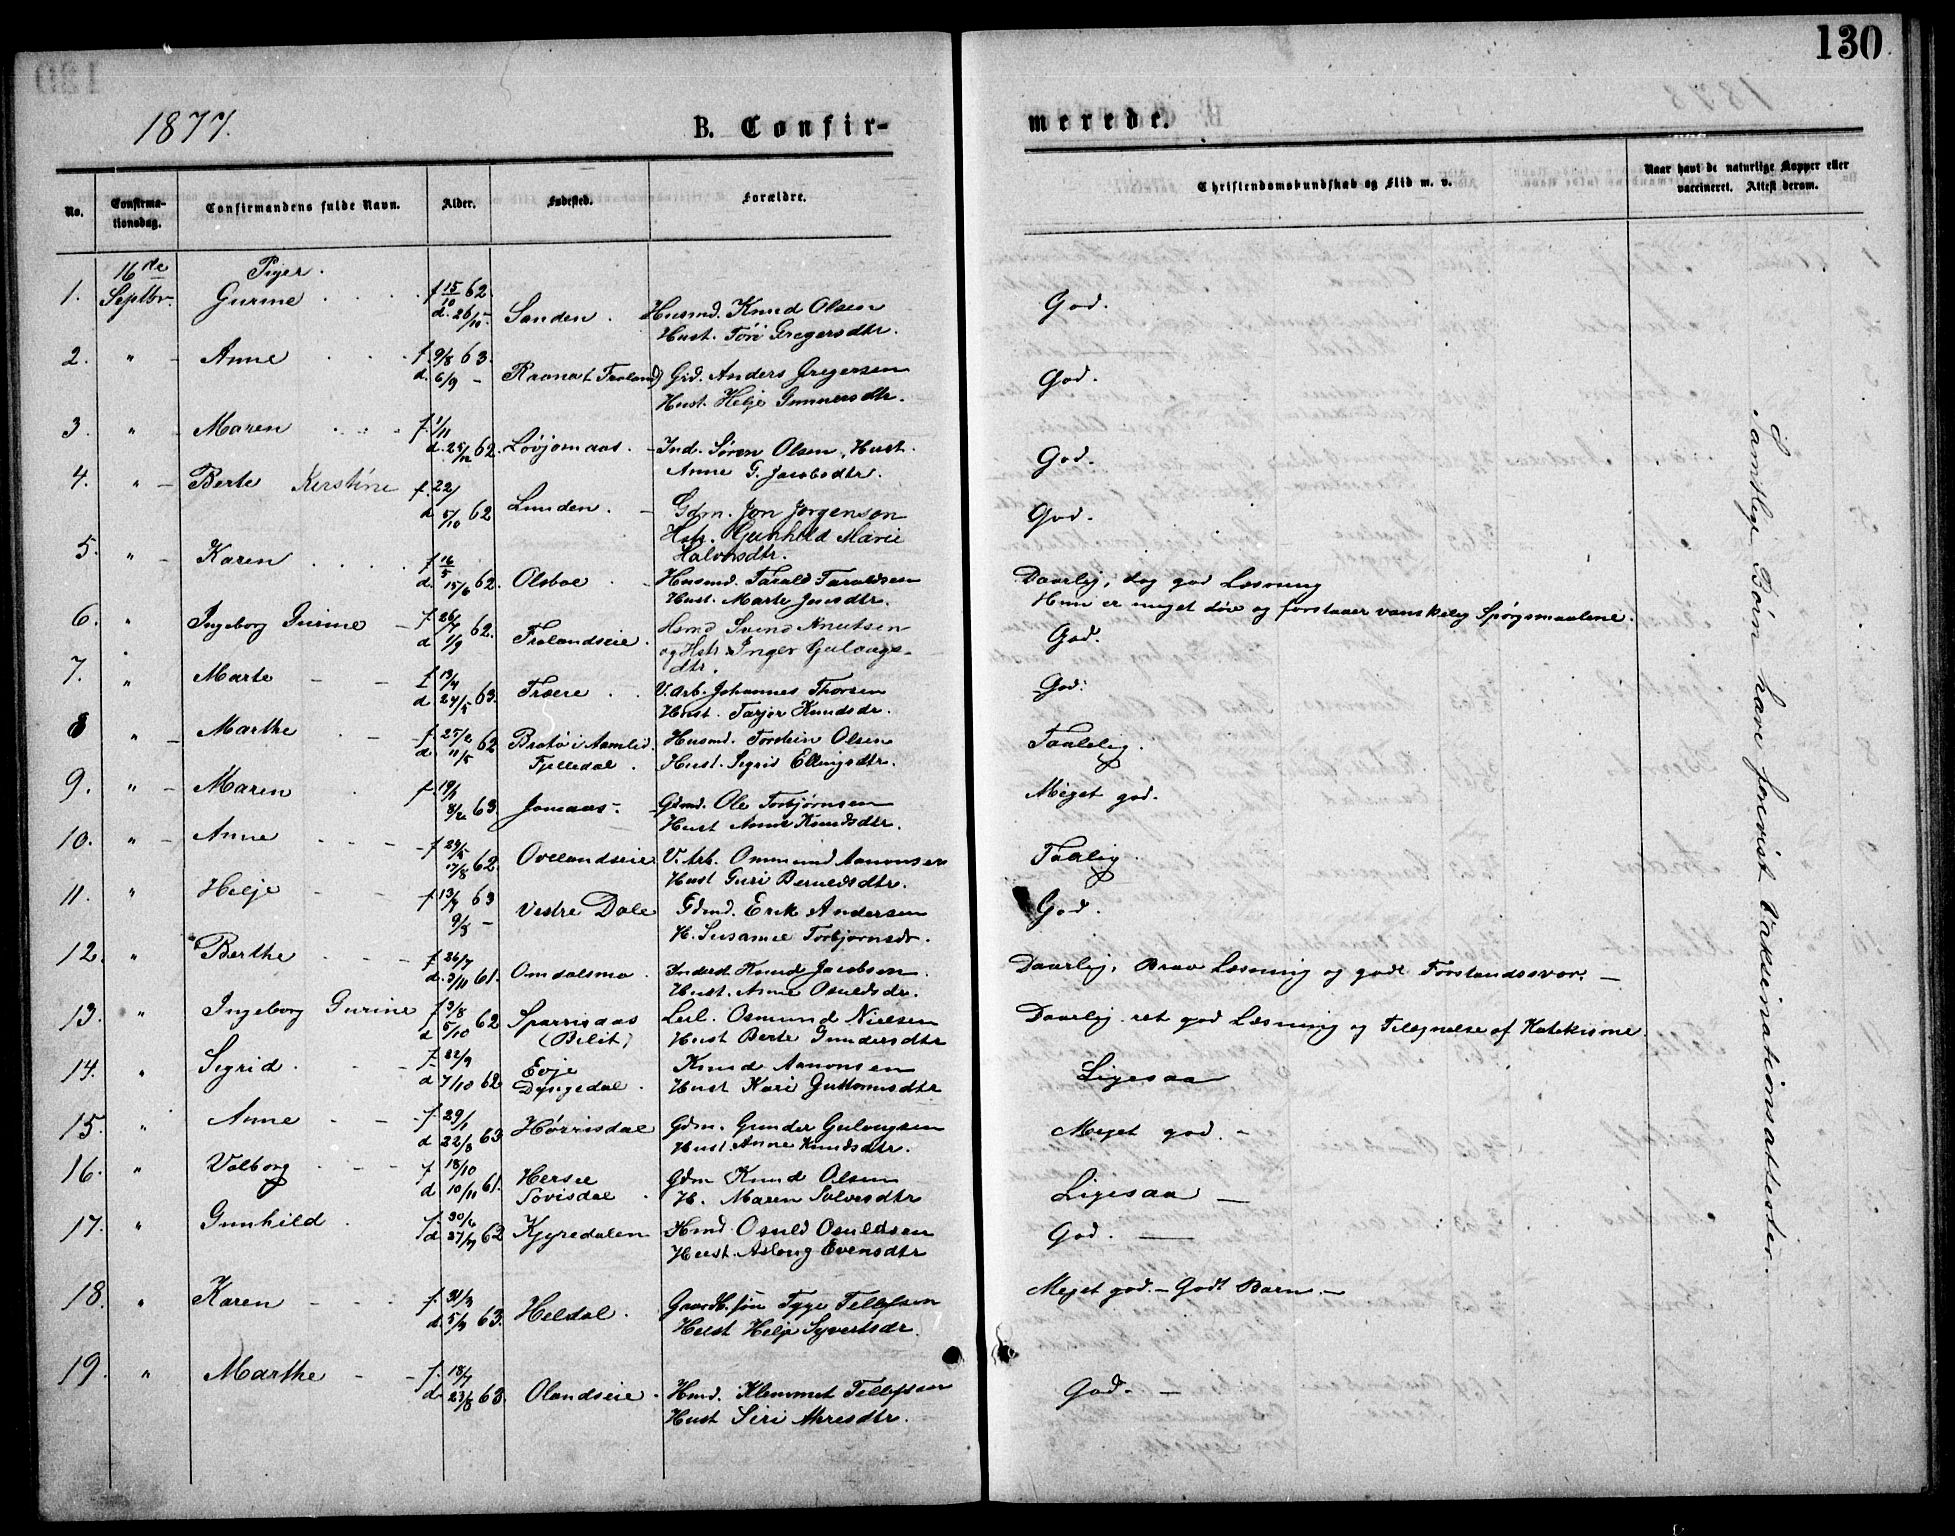 130
1877.
B. Confir-
merede.
No.
Confirma-
tionsdag.
Confirmandens fulde Navn.
Alder.
Fødested.
Forældre.
Christendomskundskab og Flid m. v.
Naar havt de naturlige Kopper eller
vaccineret. Attest derom.
16de Piger.
1. Septbr. Gurine f 15/10 62. d. 26/10 Sanden. Husmd. Knud Olsen God.
Hust. Tori Gregersdtr.
2. " Anne f. 9/8 63. d. 6/9 - Ravna (Froland) Grd. Anders Gregersen God.
Hust. Helje Gunnersdtr.
3. " Maren f. 1/11 d. 25/12 62. Løvjomaas. Ind. Søren Olsen, Hust. God.
Anne G. Jacobsdtr.
4. " Berte Kerstine f. 22/ d 5/10 62 Lunden. Gdm. Jon Jorgenson God.
Hstr. Gunhild Marie
Halvorsdtr.
5. " Karen f 16/5 d. 15/6 62. Olsboe Husmd. Tarald Taraldsen Daarlig, dog god Læsning
Hust. Marte Jensdtr. Hun er meget døv og forstaaer vanskelig Spørgsmaalene.
6. " Ingeborg Gurine f 26/7 d 1/9 62. Frolandseie. Hsmd Svend Knutsen God.
og Hstr. Inger Gulaugs-
dtr.
7. " Marte f 13/4 d 24/5 63. Froere V. Arb. Johannes Thorsen God.
Hust. Tarjer Knudsdr.
8 " Marthe f 25/2 d. 11/5 62 Bratø i Aamlid. Husmd. Torstein Olsen Taalelig.
Fjelledal. Hust. Sigrid Ellingsdtr.
9. " Maren f. 19/1 8/2 63. Jomaas Gdmd. Ole Torbjørnsen Meget god.
Hust Anne Knudsdtr.
10. " Anne f 24/5 17/8 62. Ovelandseie V. Arb. Ommund Aanonsen Taalelig.
Hust Guri Beruldsdtr.
11. " Helje f 13/7 63 9/8 - Vestre Dale Gdmd. Erik Andersen God.
H. Susanne Torbjornsdr.
12. " Berthe f 26/7 d. 3/11 61. Omdalsmo. Inderst Knud Jacobsen. Daarlig, Brav Læsning og godt Forstandssvar.
Hust. Anne Osuldsdr.
13. " Ingeborg Gurine f 3/8 d 5/10 62 Sparrisdas Leil. Osmund Nielsen Daarlig ret god Læsning og Tilegnelse af Katekisme
(Belit) Hust Berte Gundersdtr
14. " Sigrid f. 22/9 d 7/10 62 Evje Knud Aanonsen Ligesaa
Dyngedal. Hust Kari Guttormsdtr
15. " Anne f. 29/1 d 22/3 63 Hørrisdal Gdm. Gunder Gulaugsen Meget god.
Hust. Anne Knudsdtr.
16. " Valborg f 18/10 d 10/11 61. Hersee Gdm Knud Olsen Ligesaa
Tovisdal H. Maren Solvesdtr
17. " Gunhild. f. 30/6 d 27/7 62 Kjyredalen Hmd Osuld Osuldsen God.
Hust. Aslaug Evensdtr
18. " Karen f. 31/3 d. 5/7 63. Heldal. Gaardb. søn Tyge Tellefsen Meget god. - Godt Barn. -
Hust Helje Syvertsdr.
19. " Marthe f. 18/7 d. 23/8 63. Olandseie. Hmd. Klemmet Tellefsen God. -
Hust Siri Aanesdtr.
Samtlige Børn have forevist Vaksinationsattester.